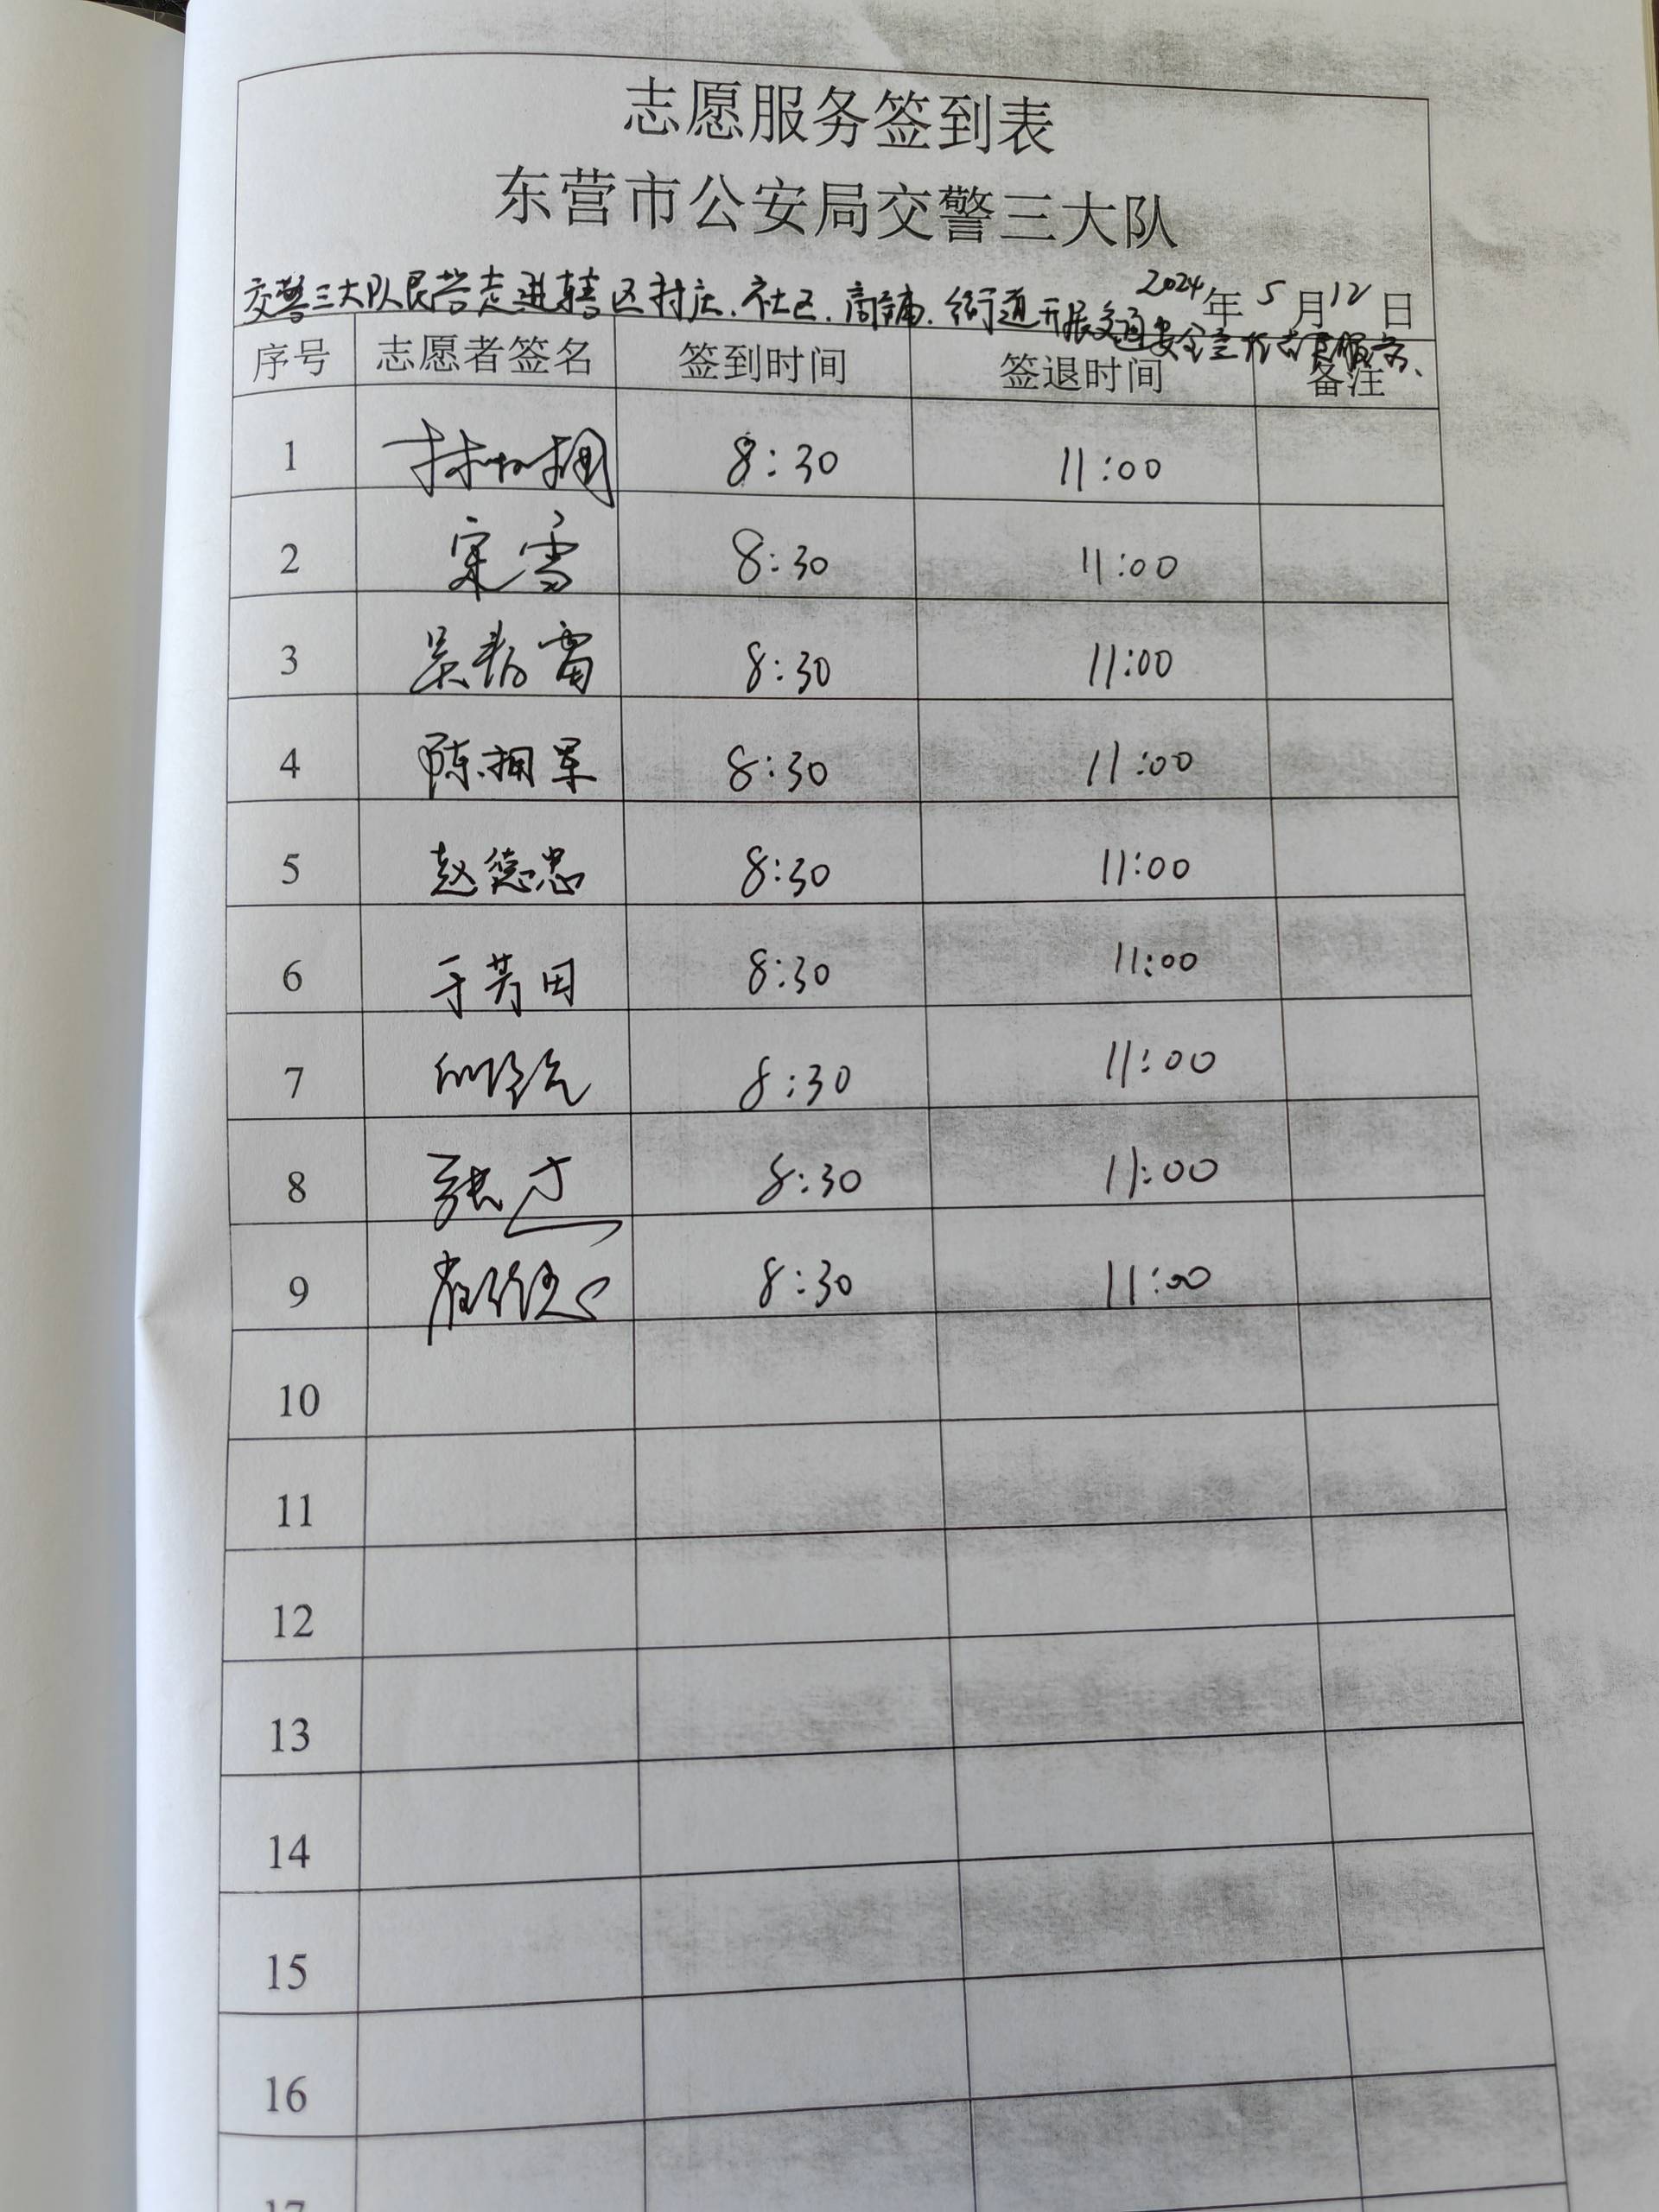 志愿服务签到表
东营市公安局交警三大队
交警三大队民警走进辖区村庄、社区、商铺、街道开展交通安全宣传志愿服务、
2024年5月12日
序号 志愿者签名 签到时间 签退时间 备注
1 8:30 11:00
2 宋雪 8:30 11:00
3 8:30 11:00
4 陈拥军 8:30 11:00
5 赵德忠 8:30 11:00
6 于芳田 8:30 11:00
7 8:30 11:00
8 8:30 11:00
9 8:30 11:00
10
11
12
13
14
15
16
17